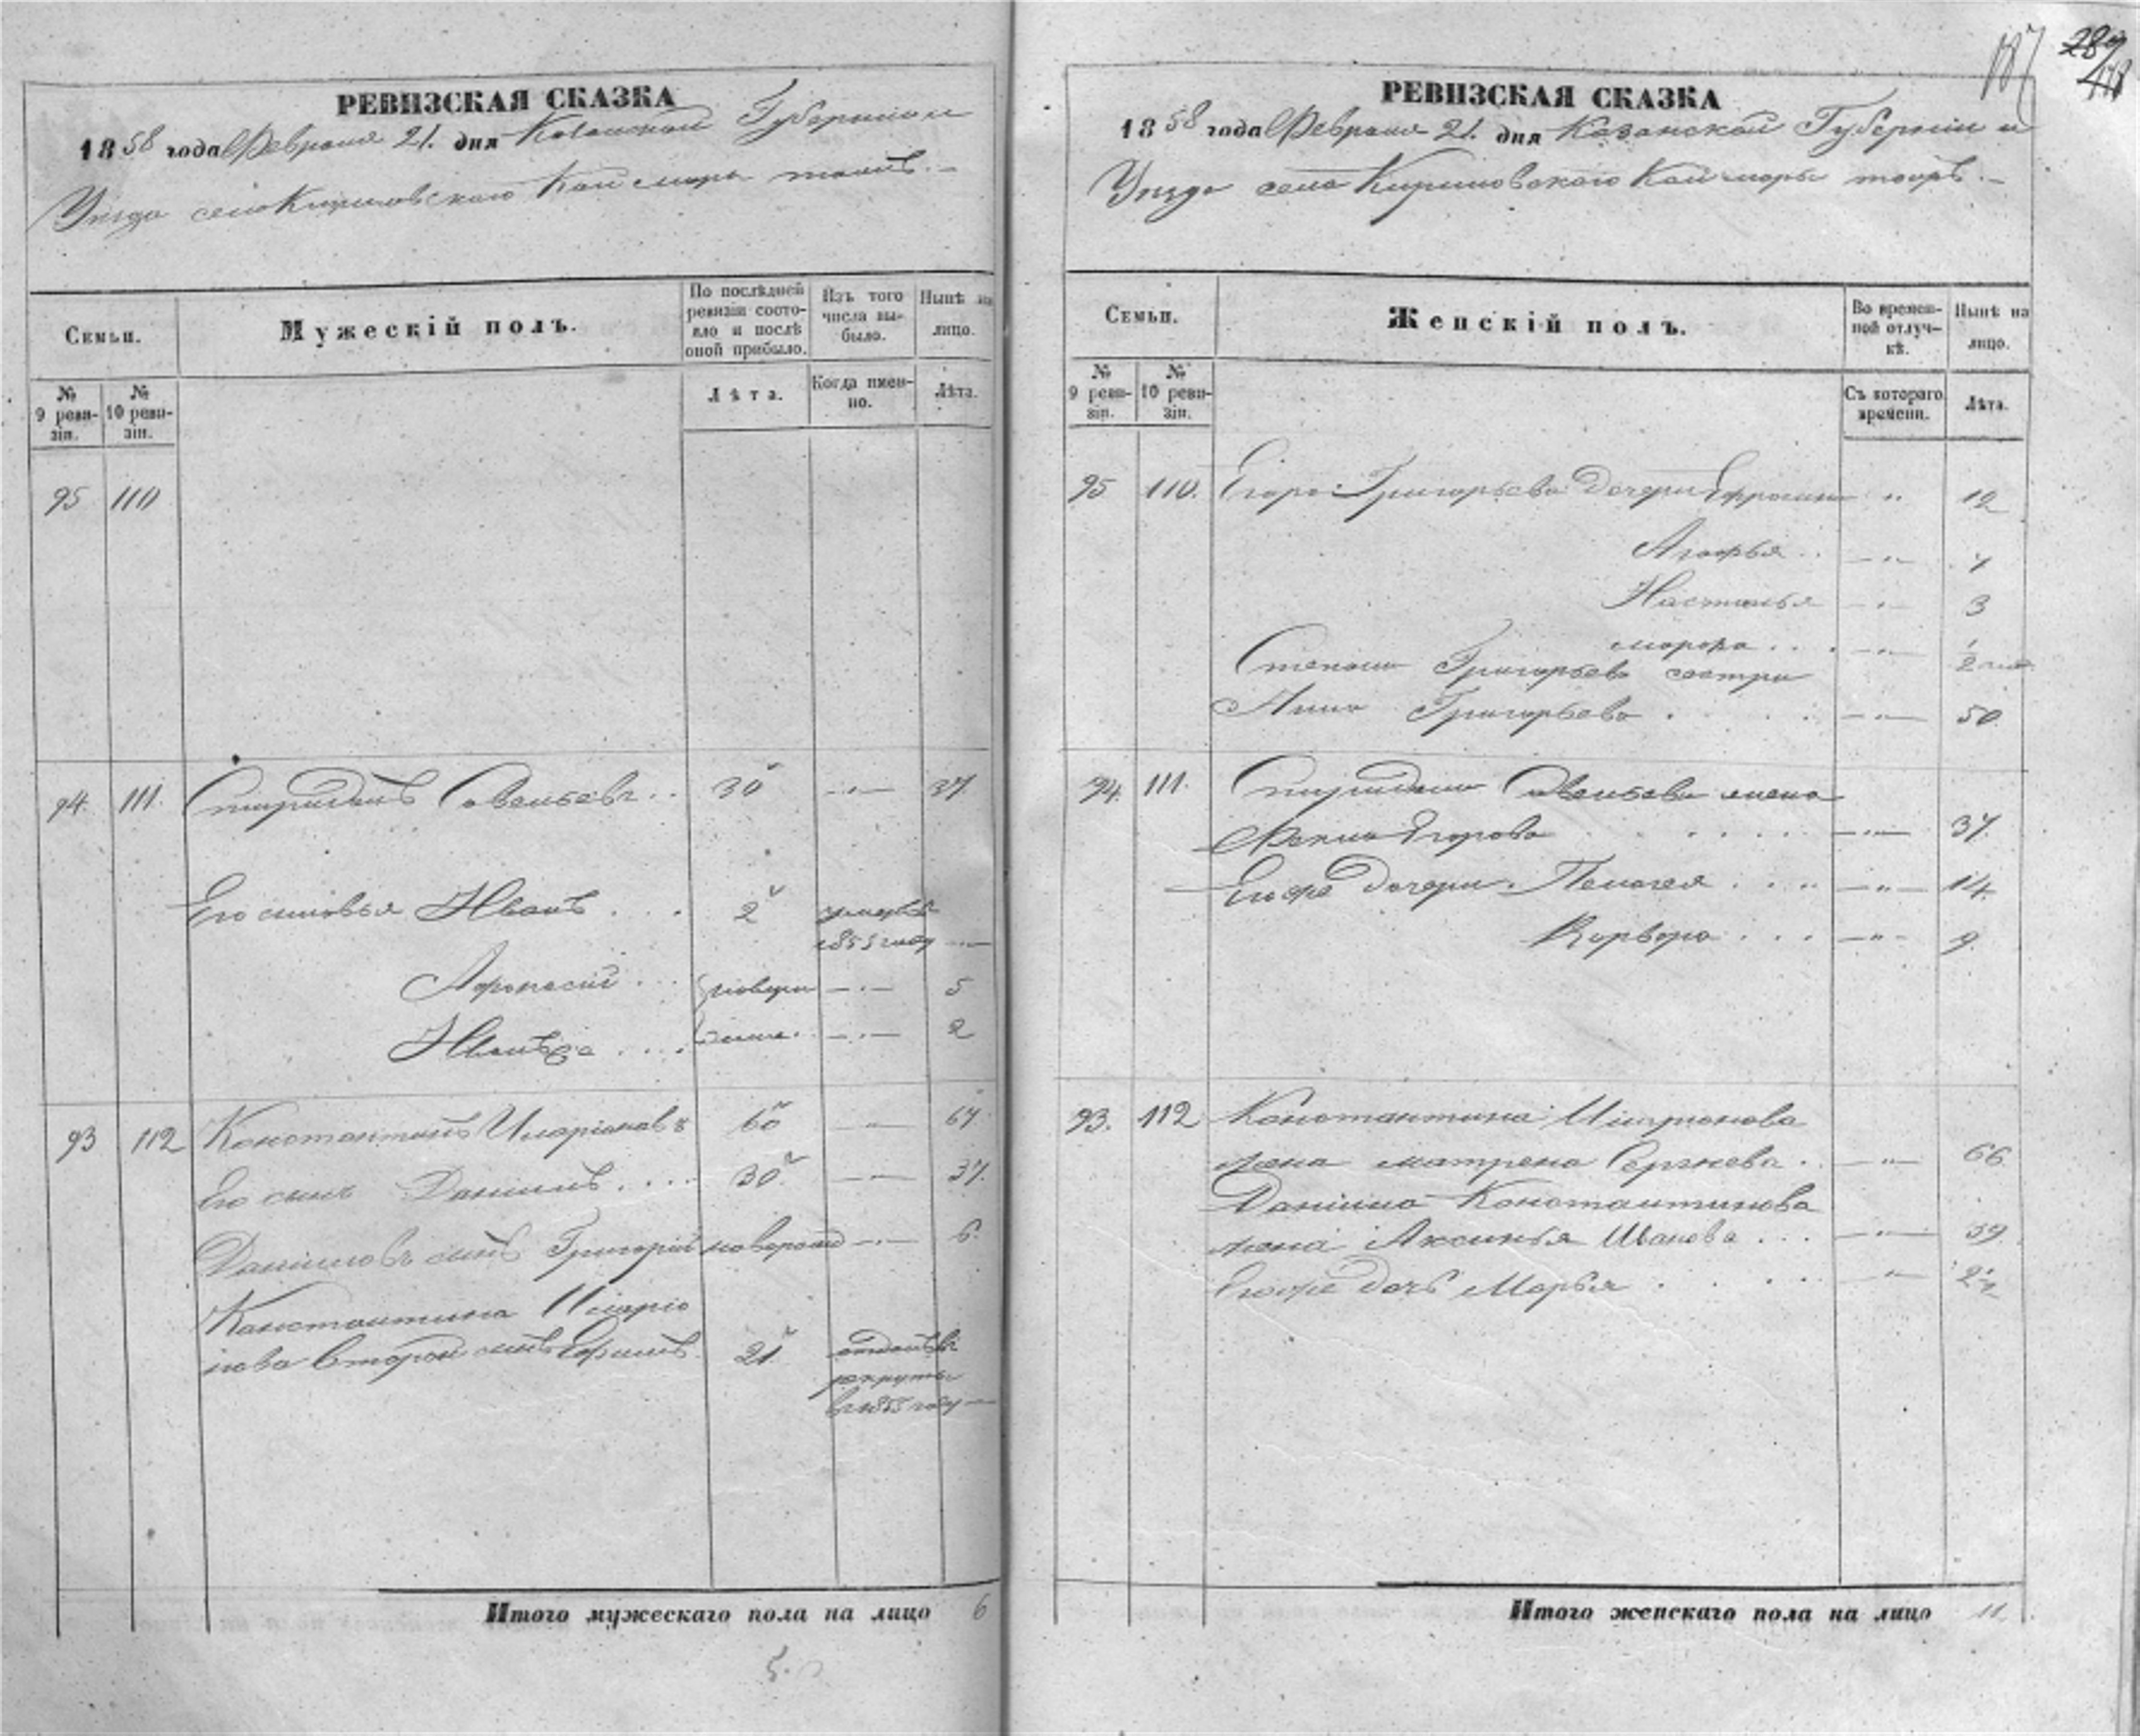 РЕВИЗСКАЯ СКАЗКА
1858 года Февраля 21. дня Казанской Губернии и
Уѣзда села Кириловскаго Каймары тожъ.
Семьи.
Мужескій полъ.
По послѣдней ревизіи состояло и послѣ оной прибыло.
Изъ того числа выбыло.
Нынѣ на лицо.
№ 9 ревизіи.
№ 10 ревизіи.
Лѣта.
Когда именно.
Лѣта.
95 110
94. 111. Спиридонъ Савельевъ . . 30 — „ — 37
Его сыновья Иванъ . . . 2 умеръ въ
1855 году — „ —
Афонасій . . . новорож — „ — 5
Иванъ 2й . . . . дены. — „ — 2
93 112 Константинъ Иларіоновъ 60 — „ — 67
Его сынъ Даніилъ . . . . 30 — „ — 37.
Даніиловъ сынъ Григорій новорожд — „ — 6.
Константина Иларіо
нова второй сынъ Ефимъ 21. отданъ въ
рекруты
въ 1855 году —
Итого мужескаго пола на лицо 6
187 289
РЕВИЗСКАЯ СКАЗКА
1858 года Февраля 21. дня Казанской Губерніи и
Уѣзда села Кириловскаго Каймары тожъ.
Семьи.
Женскій полъ.
Во временной отлучкѣ.
Нынѣ на лицо.
№ 9 ревизіи.
№ 10 ревизіи.
Съ котораго времени.
Лѣта.
95 110. Егора Григорьева дочери Ефросинья „ 12
Агафья . . — „ — 7
Настасья — „ — 3
Марфа . . . — „ — 1/2
Степана Григорьева сестра
Анна Григорьева . . . — „ — 50
94. 111. Спиридона Савельева жена
Фекла Егорова . . . . . — „ — 37.
Его же дочери. Пелагея . . . — „ — 14.
Варвара . . . — „ — 9.
93. 112 Константина Иларионова
жена Матрена Сергѣева . . — „ — 66
Даніила Константинова
жена Аксинья Иванова . . . — „ — 39
Его же дочь Марья . . . . — „ — 2 1/2
Итого женскаго пола на лицо 11.